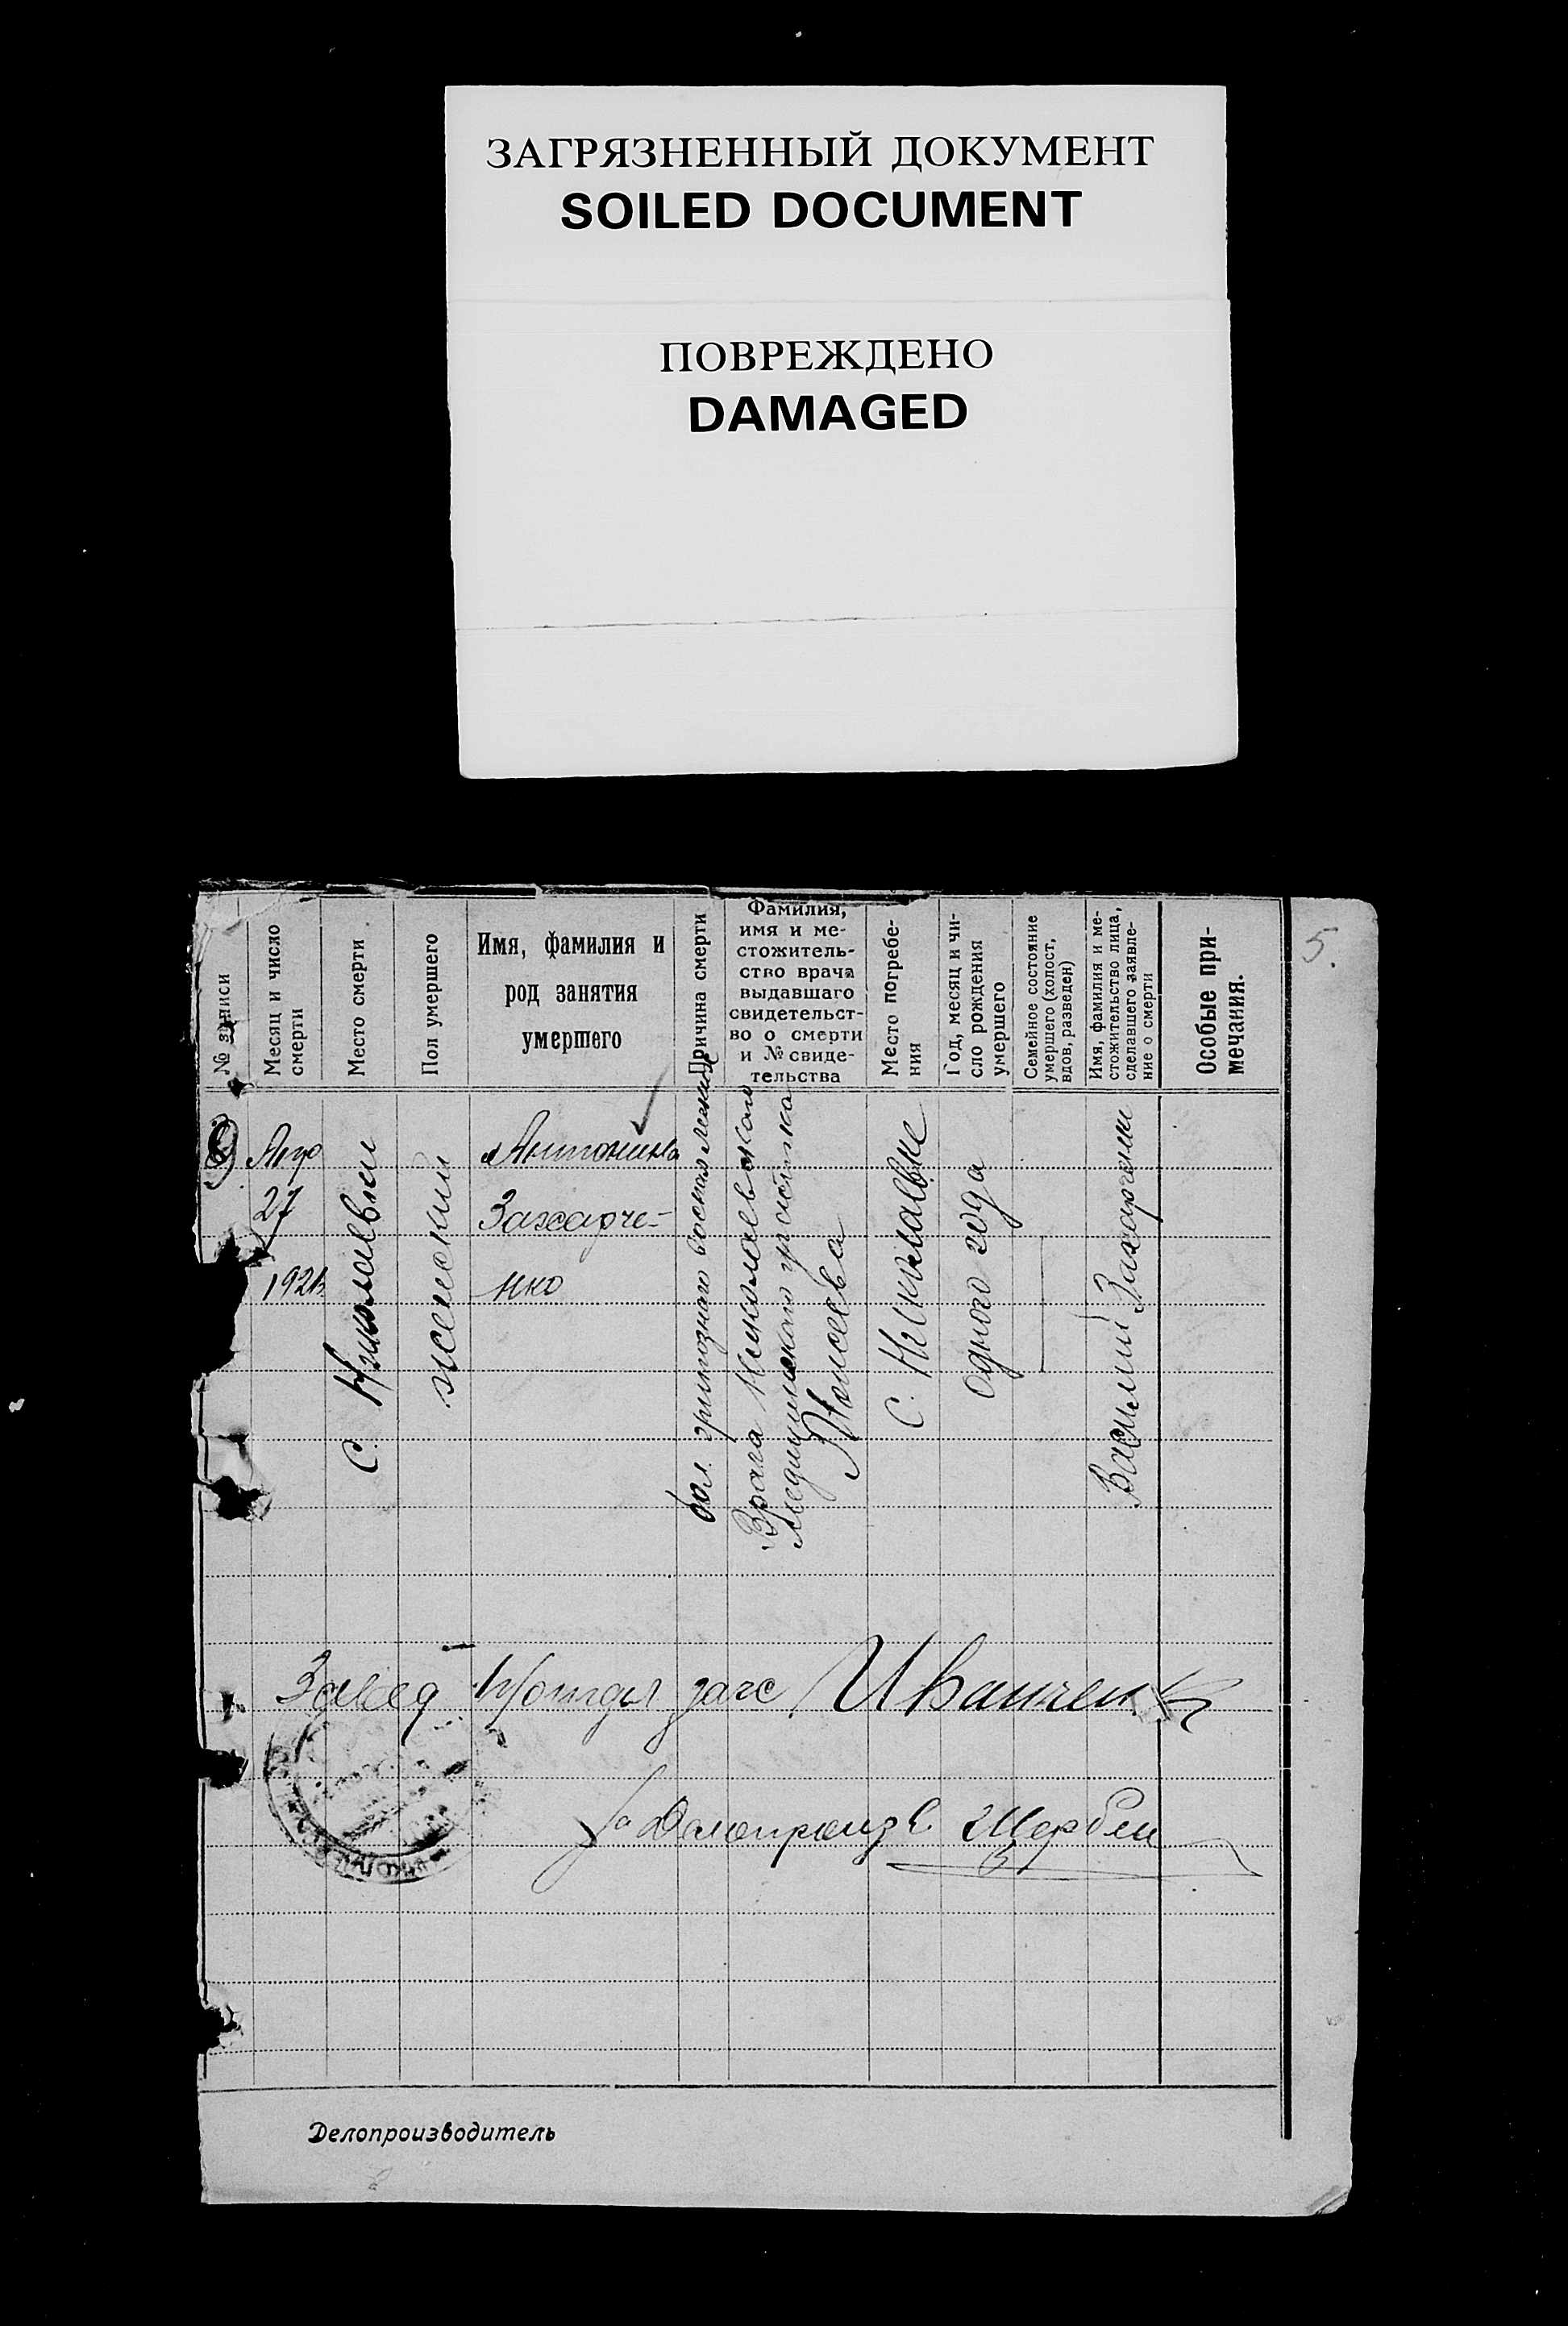 ЗАГРЯЗНЕННЫЙ ДОКУМЕНТ
SOILED DOCUMENT
ПОВРЕЖДЕНО
DAMAGED
5.
№ записи
Месяц и число
смерти
Место смерти
Пол умершего
Имя, фамилия и
род занятия
умершего
Причина смерти
Фамилия,
имя и ме-
стожитель-
ство врача
выдавшаго
свидетельст-
во о смерти
и № свиде-
тельства
Место погребе-
ния
Год, месяц и чи-
сло рождения
умершего
Семейное состояние
умершего (холост,
вдов, разведен)
Имя, фамилия и ме-
стожительство лица,
сделавшего заявле-
ние о смерти
Особые при-
мечания.
27
192
с. Николаевки
женский
Антонина
Захарче-
нко
Врача Николаевского
медицинского участка
Моисеева
с. Николаевке
одного года
Василий Захарченко
Завед загс Иванченко
Делопроизв.
Делопроизводитель